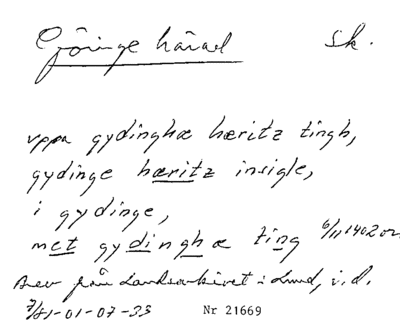 Göinge härad Sk.
vppa gydinghæ hæritz tingh,
gydinge hæritz insigle,
i gydinge,
met gydinghæ ting 6/11 1402 or.
Brev från Landsarkivet i Lund, i.d.
7/81-01-07-33 Nr 21669